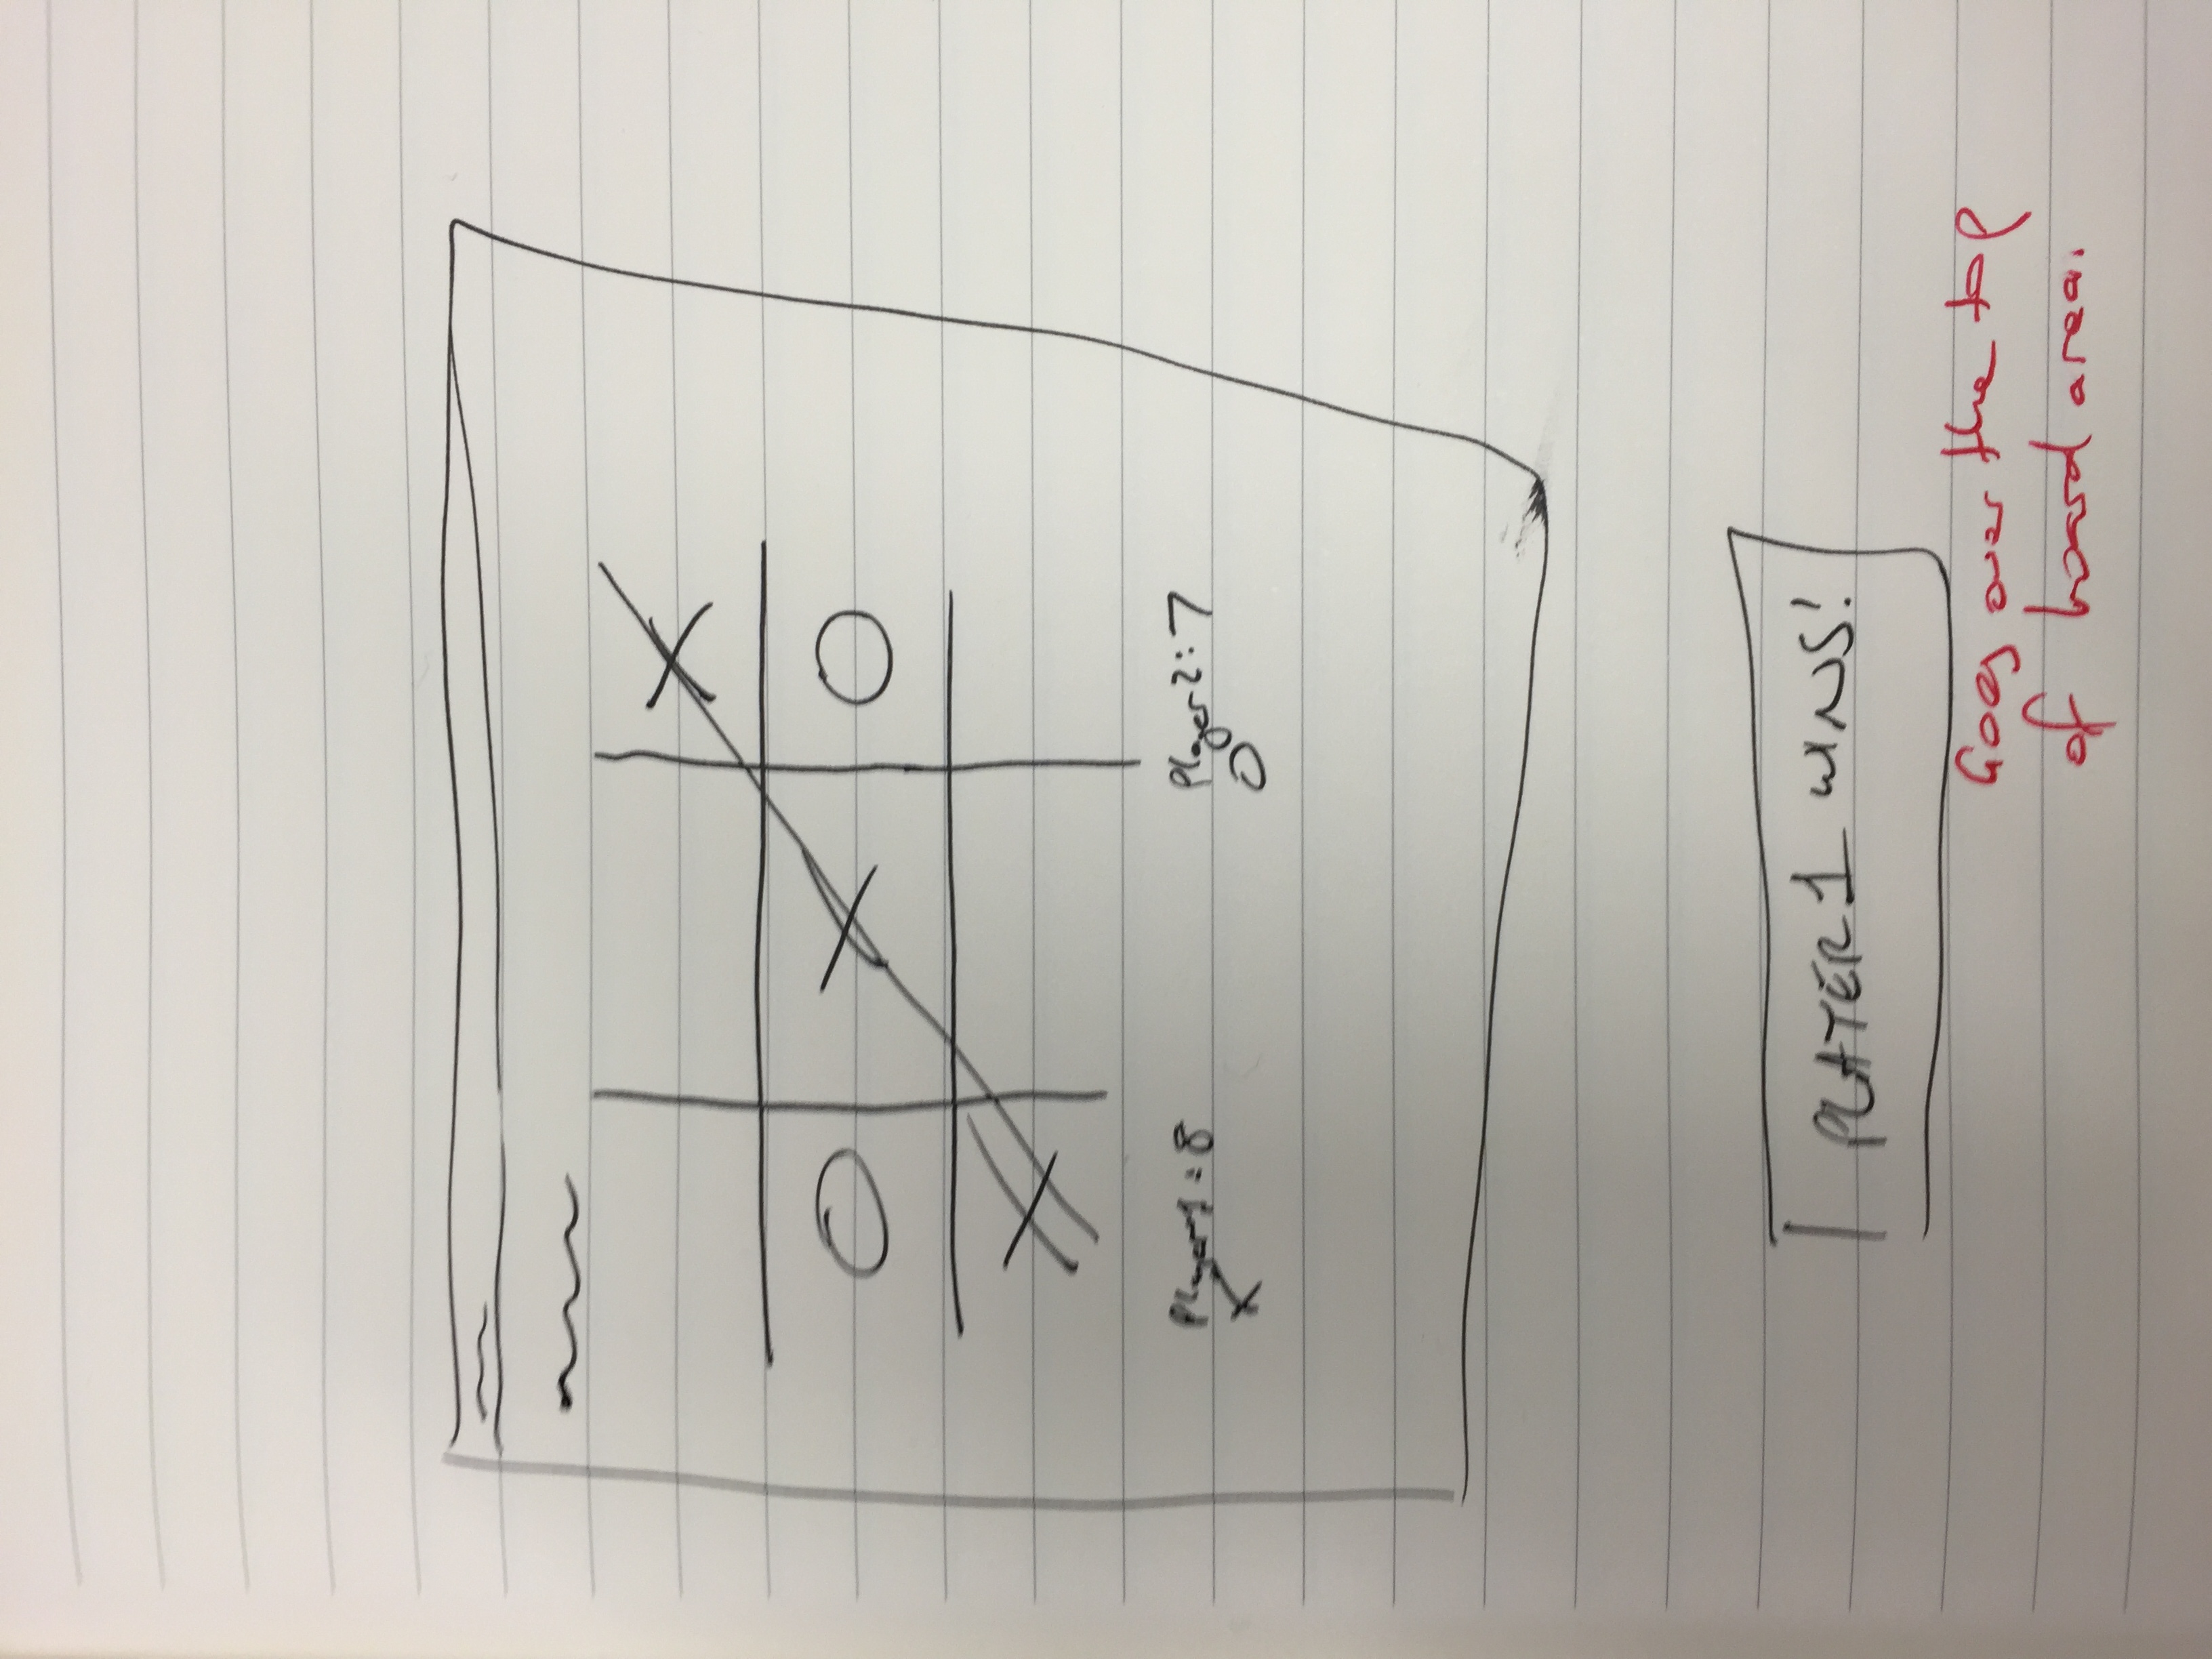 X
O X O
X
Player 1 : 8 Player 2 : 7
X O
PLAYER 1 WINS!
Goes over the top
of board area.